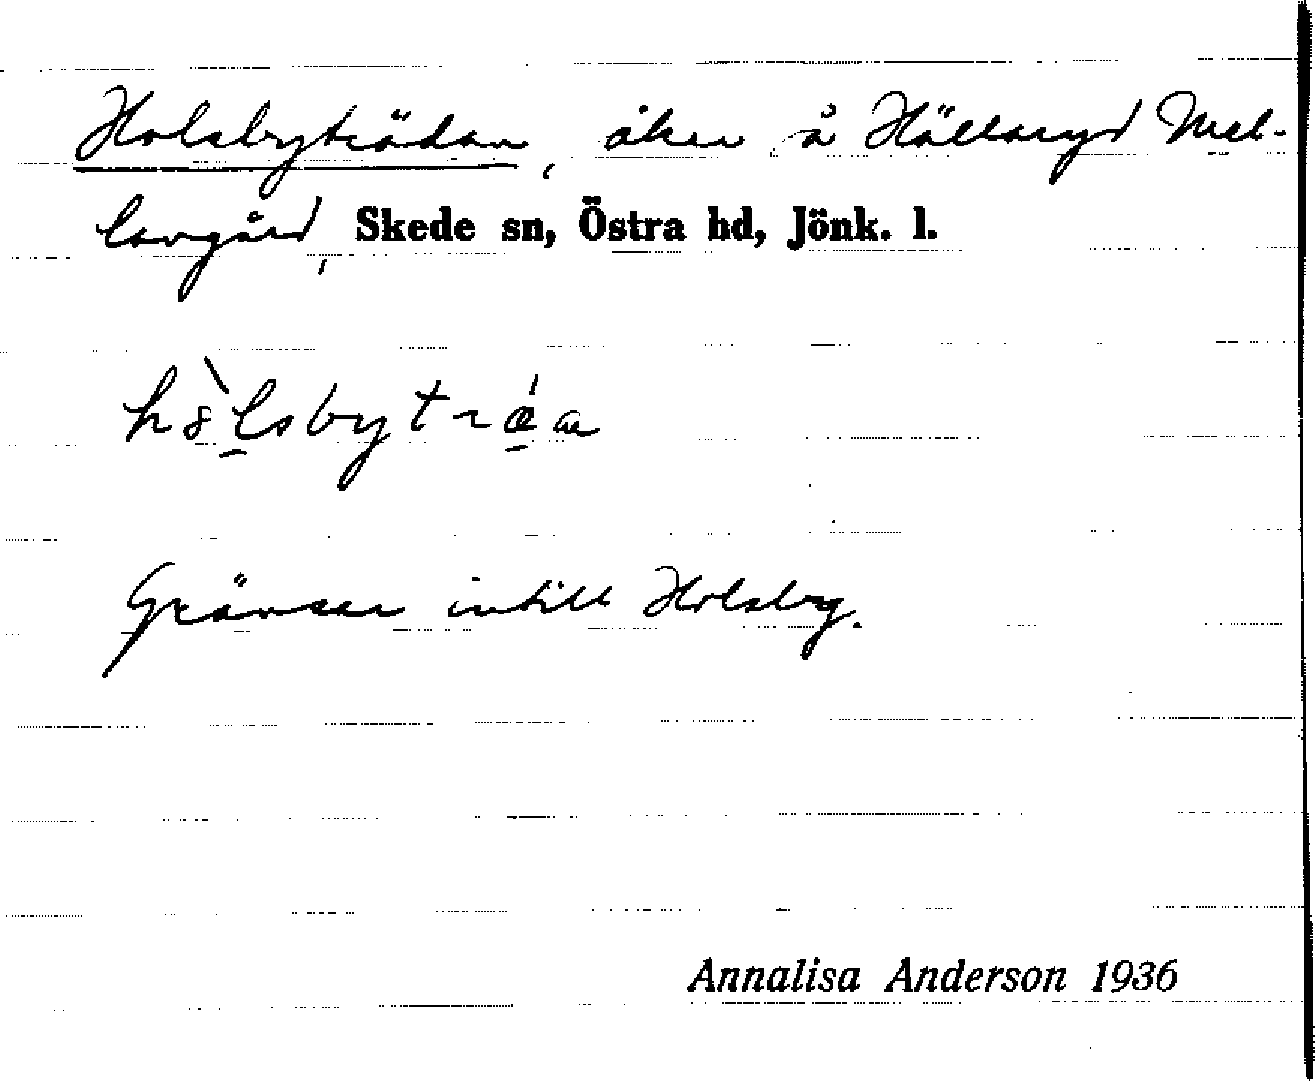 Holsbyträdan, åker å Hällaryd Mel-
langård, Skede sn, Östra hd, Jönk. l.
Gränsar intill Holsby.
Annalisa Anderson 1936